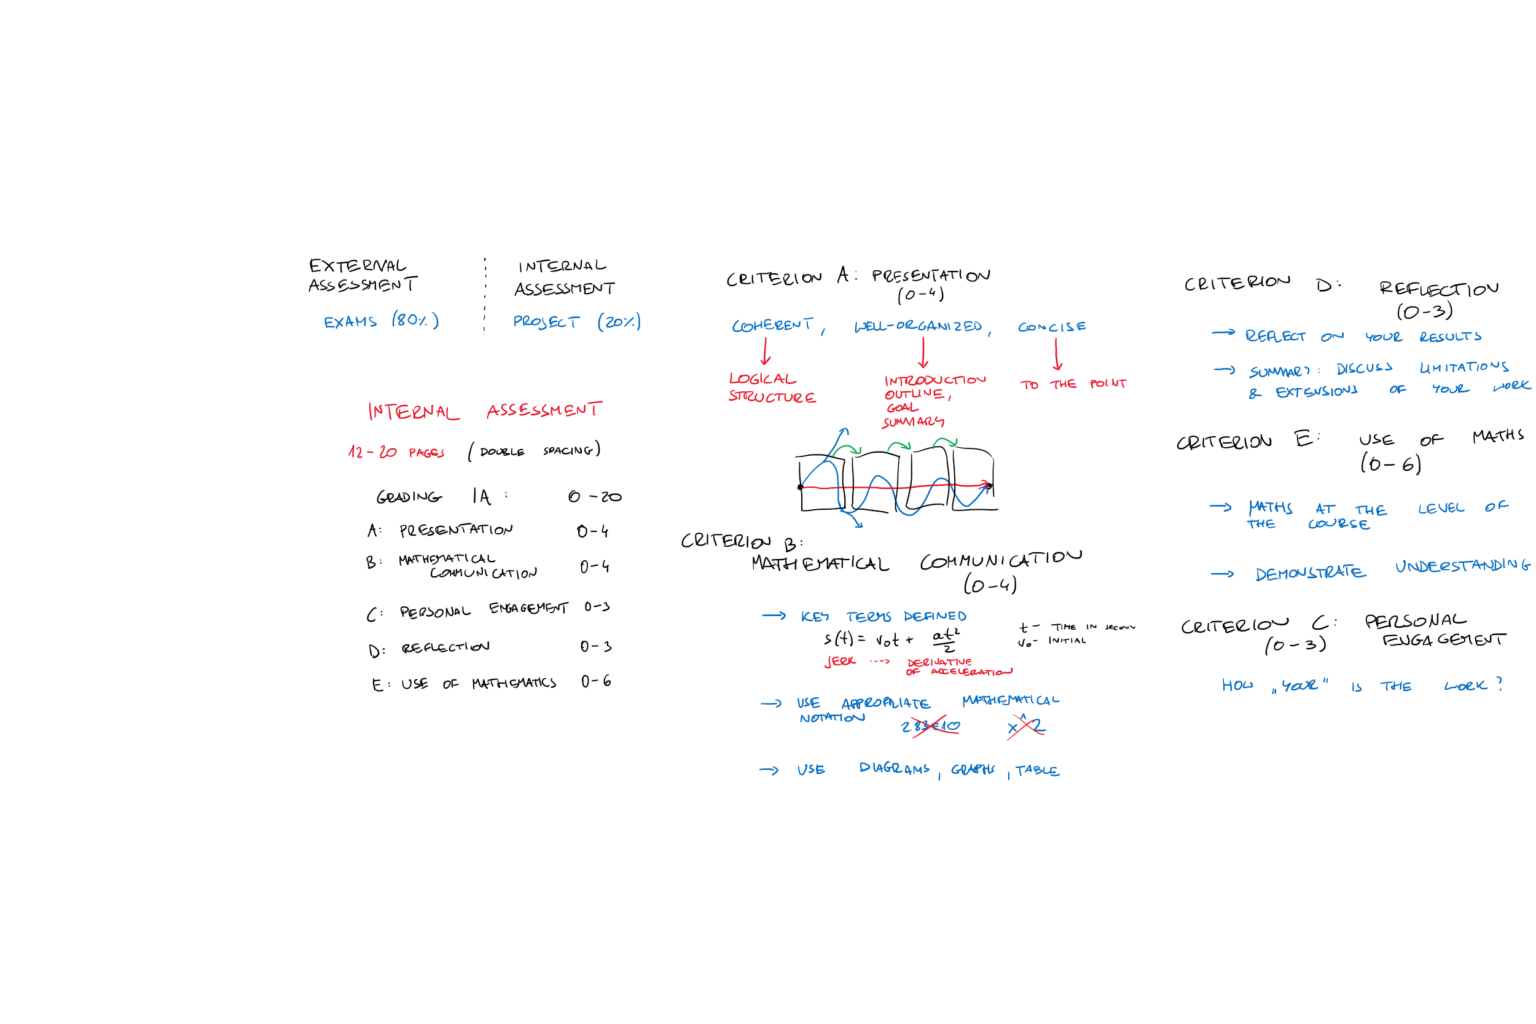 EXTERNAL
ASSESSMENT
EXAMS (80%)
INTERNAL
ASSESSMENT
PROJECT (20%)
INTERNAL ASSESSMENT
12-20 PAGES (DOUBLE SPACING)
GRADING IA: 0-20
A: PRESENTATION 0-4
B: MATHEMATICAL
COMMUNICATION 0-4
C: PERSONAL ENGAGEMENT 0-3
D: REFLECTION 0-3
E: USE OF MATHEMATICS 0-6
CRITERION A: PRESENTATION
(0-4)
COHERENT, WELL-ORGANIZED, CONCISE
LOGICAL
STRUCTURE
INTRODUCTION
OUTLINE,
GOAL
SUMMARY
TO THE POINT
CRITERION B:
MATHEMATICAL COMMUNICATION
(0-4)
→ KEY TERMS DEFINED
s(t) = v₀t + at²/2
t - TIME IN SECOND
v₀ - INITIAL
JERK ---> DERIVATIVE
OF ACCELERATION
→ USE APPROPRIATE MATHEMATICAL
NOTATION
x^2
→ USE DIAGRAMS, GRAPHS, TABLE
CRITERION D: REFLECTION
(0-3)
→ REFLECT ON YOUR RESULTS
→ SUMMARY: DISCUSS LIMITATIONS
& EXTENSIONS OF YOUR WORK
CRITERION E: USE OF MATHS
(0-6)
→ MATHS AT THE LEVEL OF
THE COURSE
→ DEMONSTRATE UNDERSTANDING
CRITERION C: PERSONAL
ENGAGEMENT
(0-3)
HOW „YOUR" IS THE WORK?